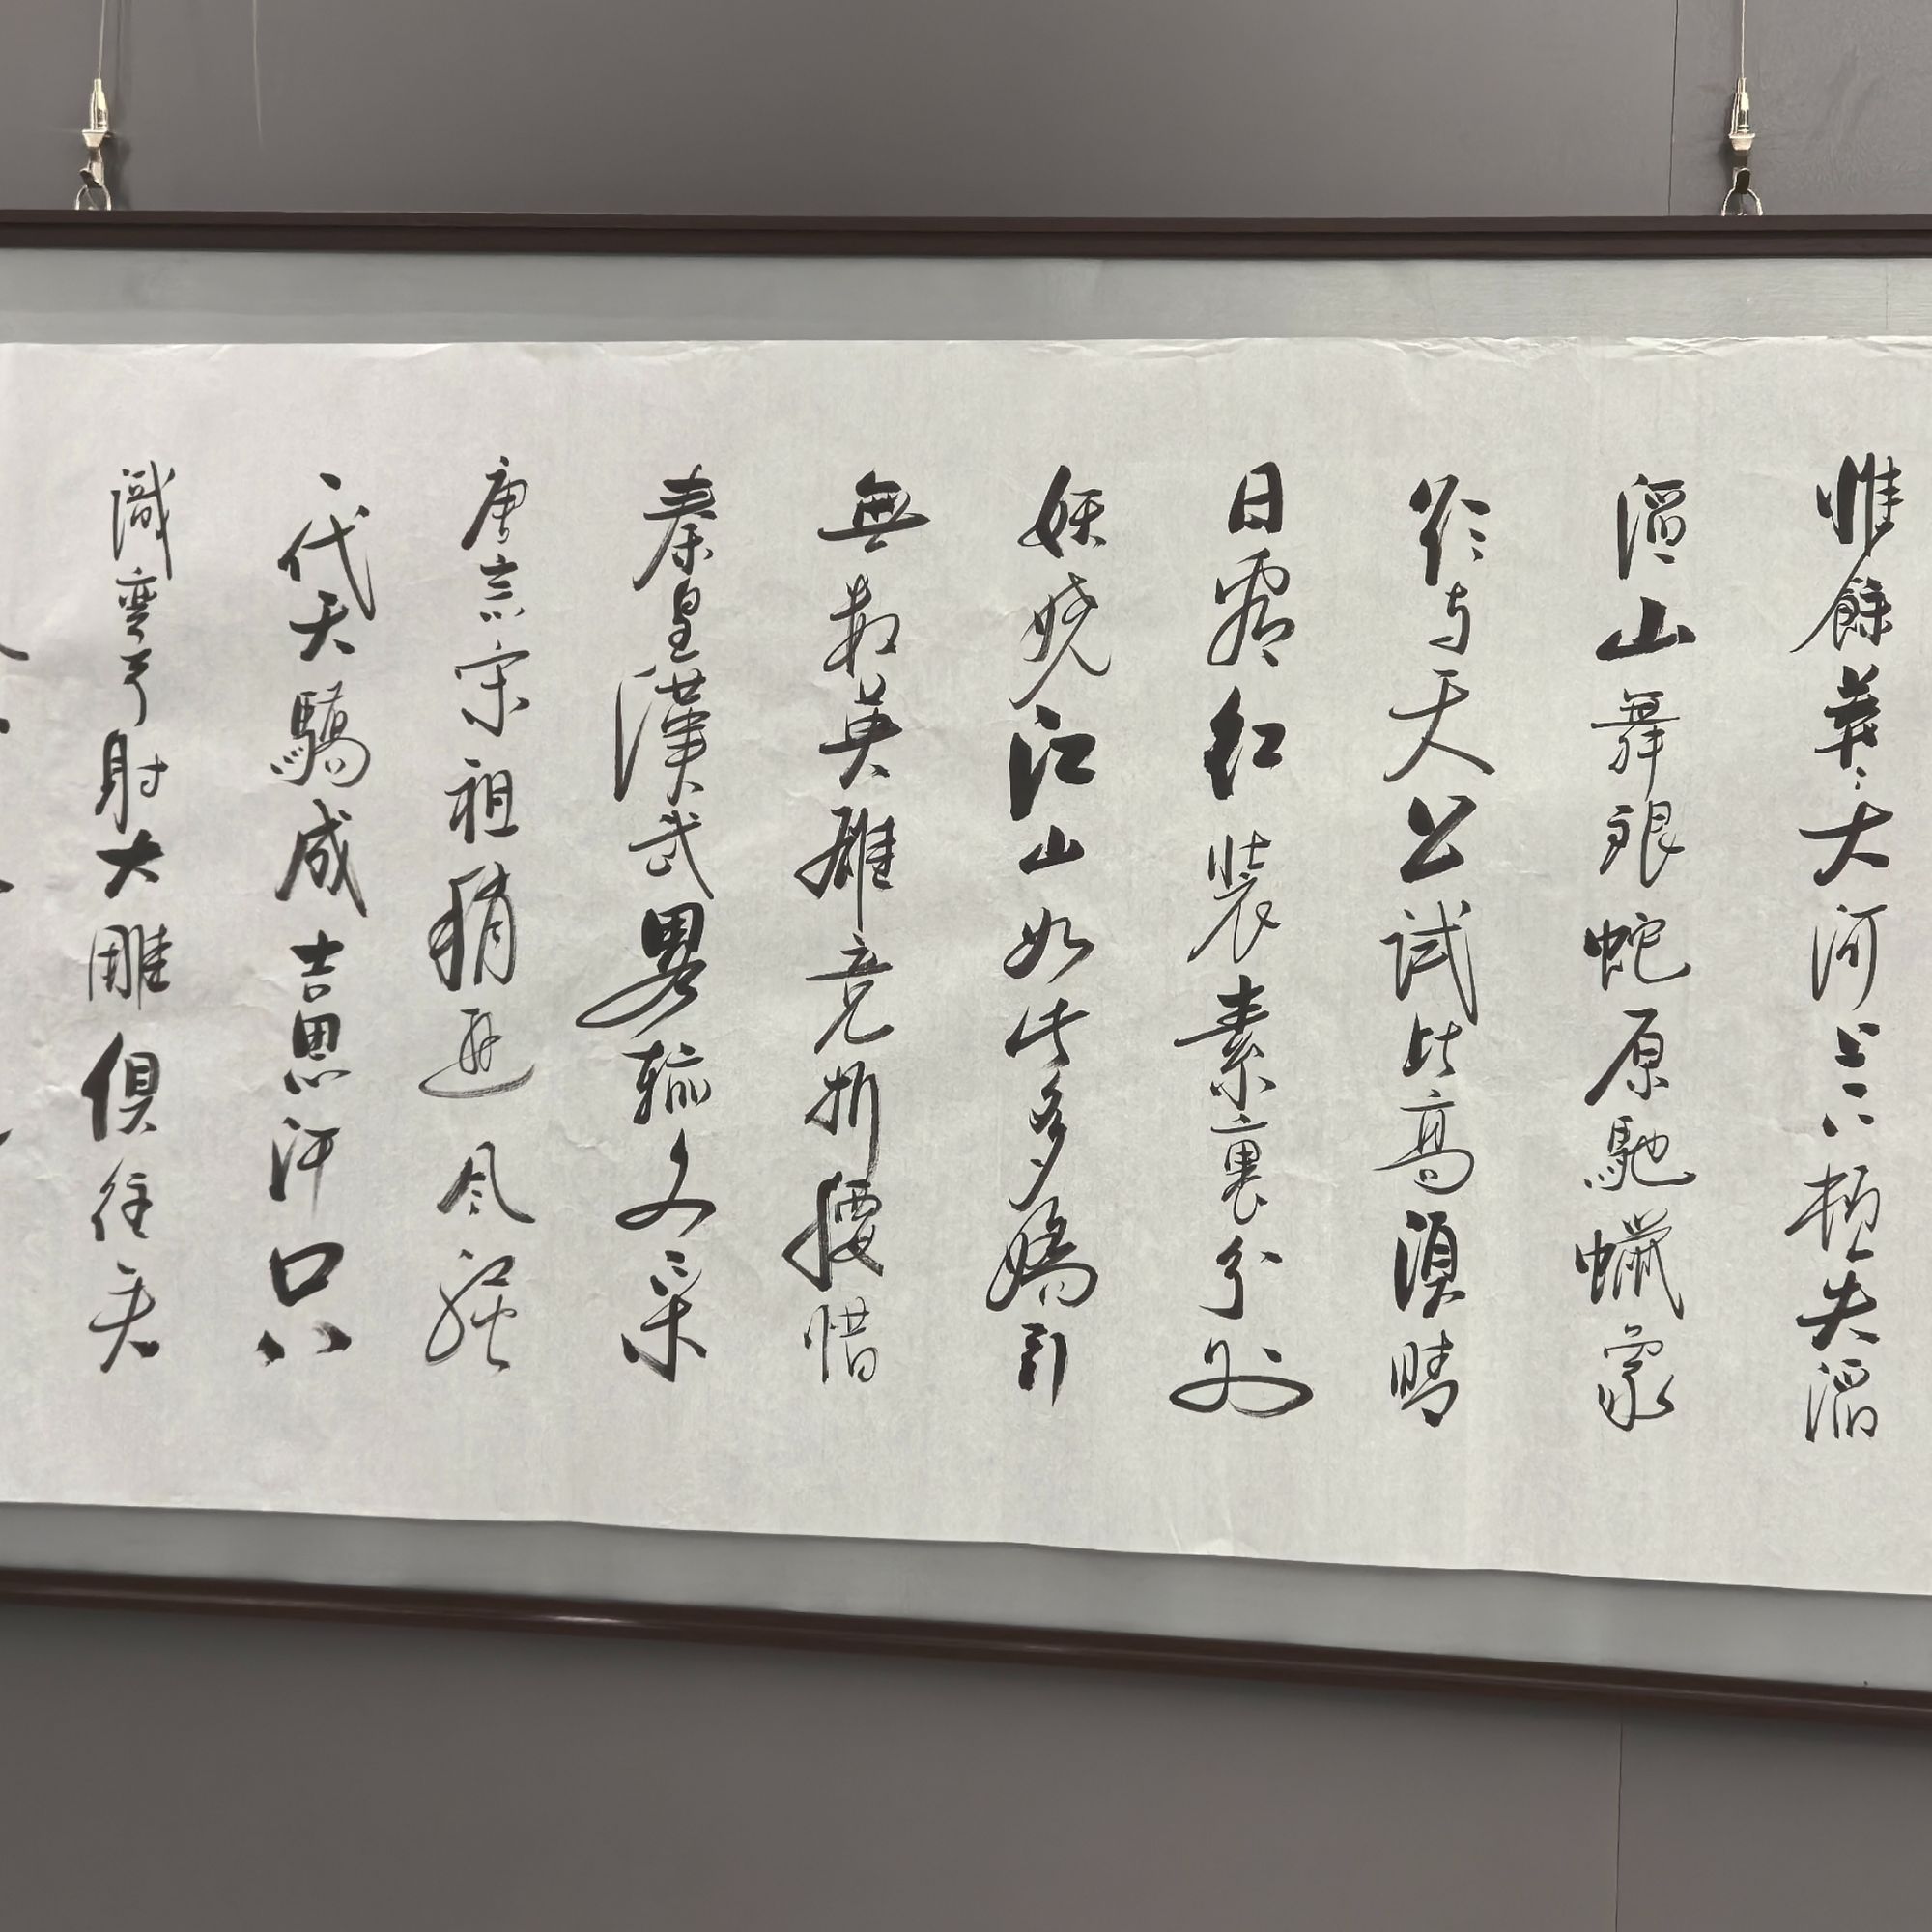 惟餘莽々大河上下頓失滔
滔山舞銀蛇原馳蠟象
欲与天公試比高須晴
日看红裝素裹分外
妖娆江山如此多嬌引
無數英雄竞折腰惜
秦皇漢武畧输文采
唐宗宋祖稍逊风骚
一代天驕成吉思汗只
識彎弓射大雕俱往矣